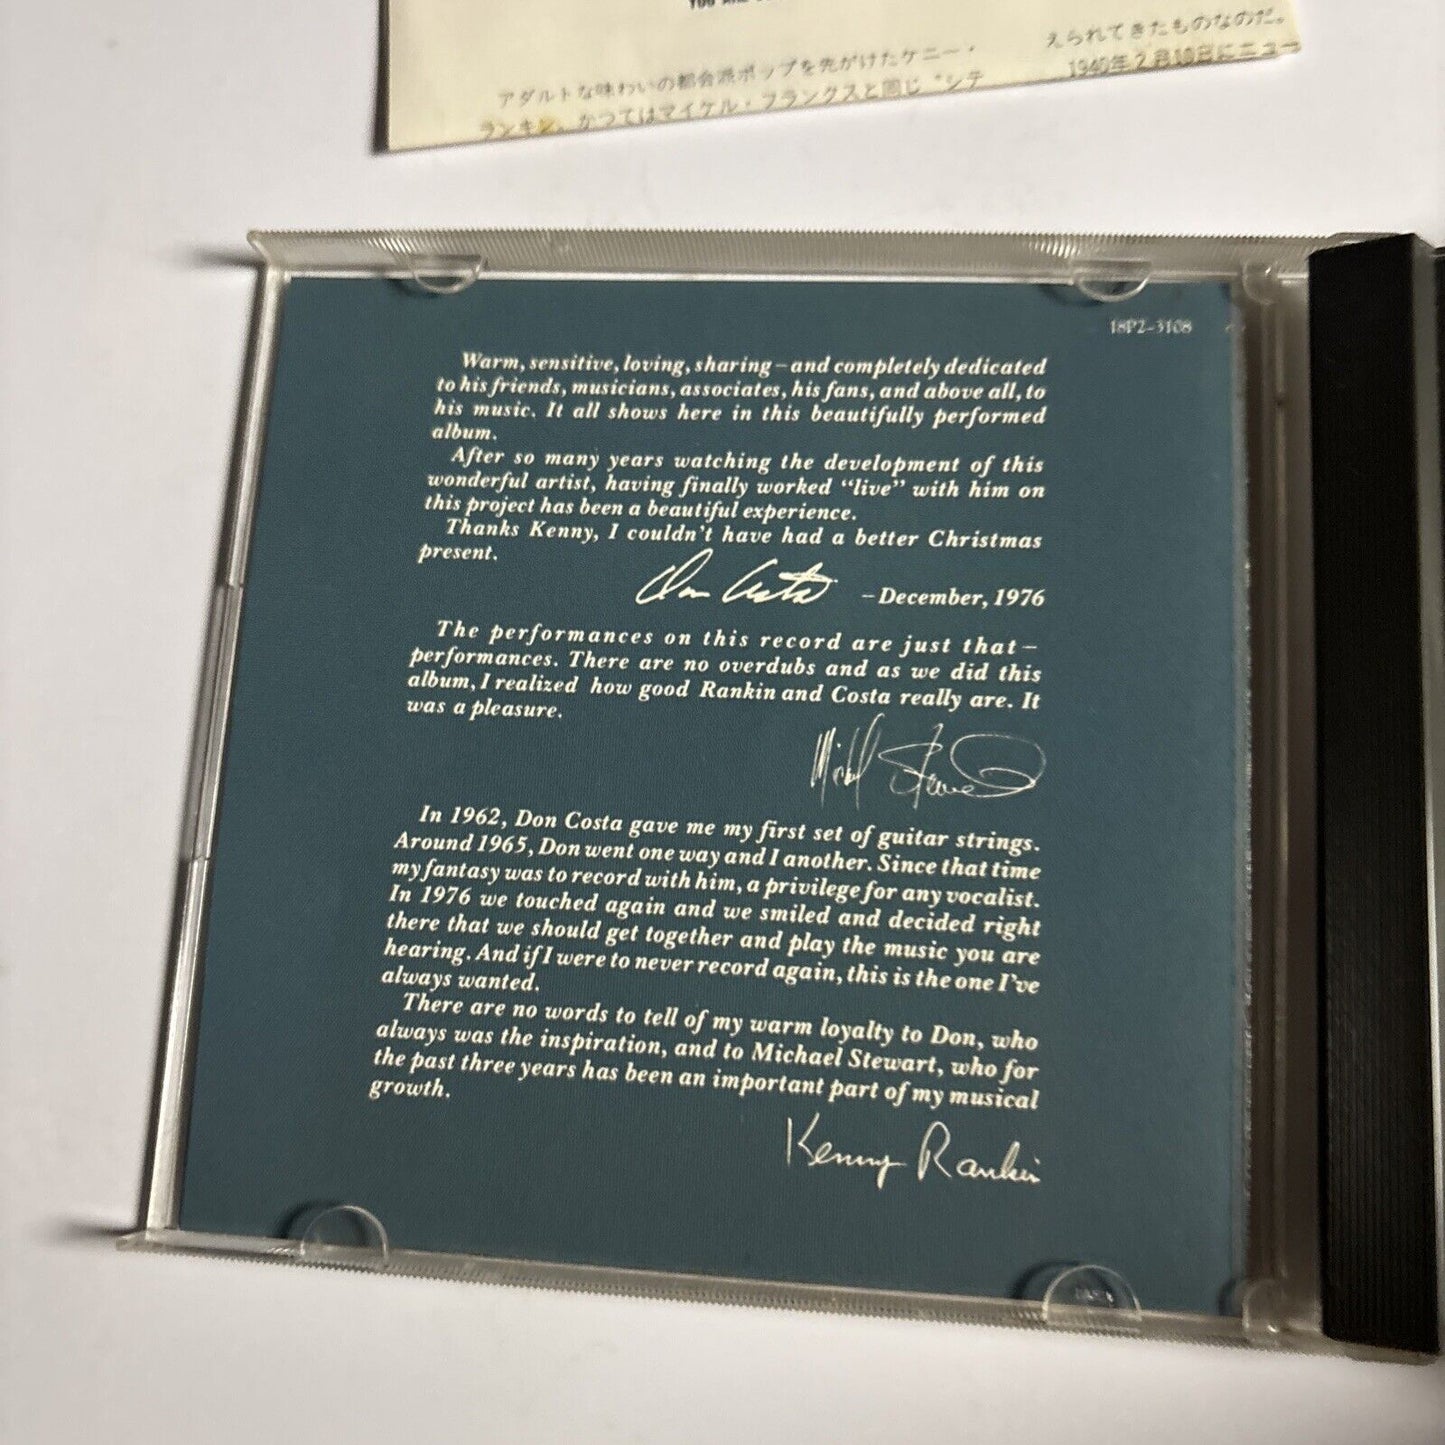 えられてきたものなのだ。
アダルトな味わいの都会派ポップを先がけたケニー・
1940年2月10日にニュー
ランキン。かつてはマイケル・フランクスと同じ“シテ
18P2-3108
Warm, sensitive, loving, sharing – and completely dedicated
to his friends, musicians, associates, his fans, and above all, to
his music. It all shows here in this beautifully performed
album.
After so many years watching the development of this
wonderful artist, having finally worked “live” with him on
this project has been a beautiful experience.
Thanks Kenny, I couldn't have had a better Christmas
present.
Don Costa – December, 1976
The performances on this record are just that –
performances. There are no overdubs and as we did this
album, I realized how good Rankin and Costa really are. It
was a pleasure.
Michael Stewart
In 1962, Don Costa gave me my first set of guitar strings.
Around 1965, Don went one way and I another. Since that time
my fantasy was to record with him, a privilege for any vocalist.
In 1976 we touched again and we smiled and decided right
there that we should get together and play the music you are
hearing. And if I were to never record again, this is the one I've
always wanted.
There are no words to tell of my warm loyalty to Don, who
always was the inspiration, and to Michael Stewart, who for
the past three years has been an important part of my musical
growth.
Kenny Rankin